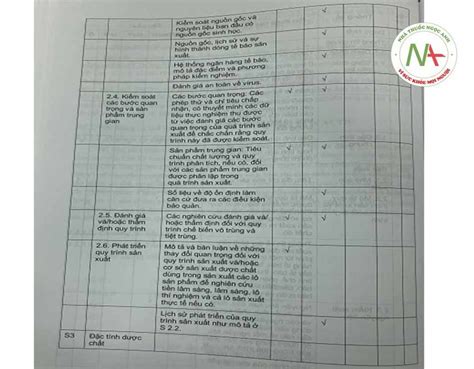 Kiểm soát nguồn gốc và
nguyên liệu ban đầu có
nguồn gốc sinh học.
Nguồn gốc, lịch sử và sự
hình thành dòng tế bào sản
xuất.
Hệ thống ngân hàng tế bào,
mô tả đặc điểm và phương
pháp kiểm nghiệm.
Đánh giá an toàn về virus.
2.4. Kiểm soát
các bước quan
trọng và sản
phẩm trung gian
Các bước quan trọng: Các
phép thử và chỉ tiêu chấp
nhận, có thuyết minh các dữ
liệu thực nghiệm thu được
từ việc đánh giá các bước
quan trọng của quá trình sản
xuất để chắc chắn rằng quy
trình này đã được kiểm soát.
Sản phẩm trung gian: Tiêu
chuẩn chất lượng và quy
trình phân tích, nếu có, đối
với các sản phẩm trung gian
được phân lập trong
quá trình sản xuất.
Số liệu về độ ổn định làm
căn cứ đưa ra các điều kiện
bảo quản.
2.5. Đánh giá
và/hoặc thẩm
định quy trình
Các nghiên cứu đánh giá và/
hoặc thẩm định đối với quy
trình chế biến vô trùng và
tiệt trùng.
2.6. Phát triển
quy trình sản
xuất
Mô tả và bàn luận về những
thay đổi quan trọng đối với
quy trình sản xuất và/hoặc
cơ sở sản xuất dược chất
dùng trong sản xuất các lô
sản phẩm để nghiên cứu
tiền lâm sàng, lâm sàng, lô
thí nghiệm và cả lô sản xuất
thực tế nếu có.
Lịch sử phát triển của quy
trình sản xuất như mô tả ở
S 2.2.
S3 Đặc tính dược
chất
NHÀ THUỐC NGỌC ANH
VÌ SỨC KHỎE MỌI NGƯỜI